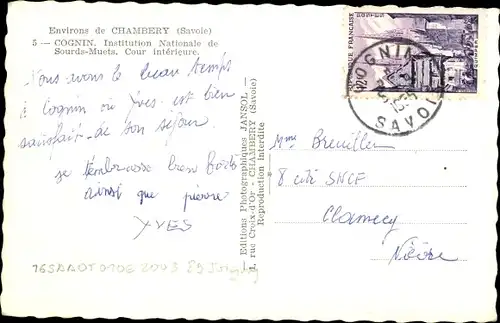 Environs de CHAMBERY (Savoie)
5 — COGNIN. Institution Nationale de
Sourds-Muets. Cour intérieure.
Nous avons le beau temps
à Cognin où Yves est bien
satisfait de son séjour
je t'embrasse bien fort
ainsi que pierre
YVES
Editions Photographiques JANSOL
1, rue Croix-d'Or - CHAMBERY (Savoie)
Reproduction interdite
FRANÇAISE
POSTES
COGNIN
SAVOIE
Mme Breuiller
8 cité SNCF
Clamecy
Nièvre